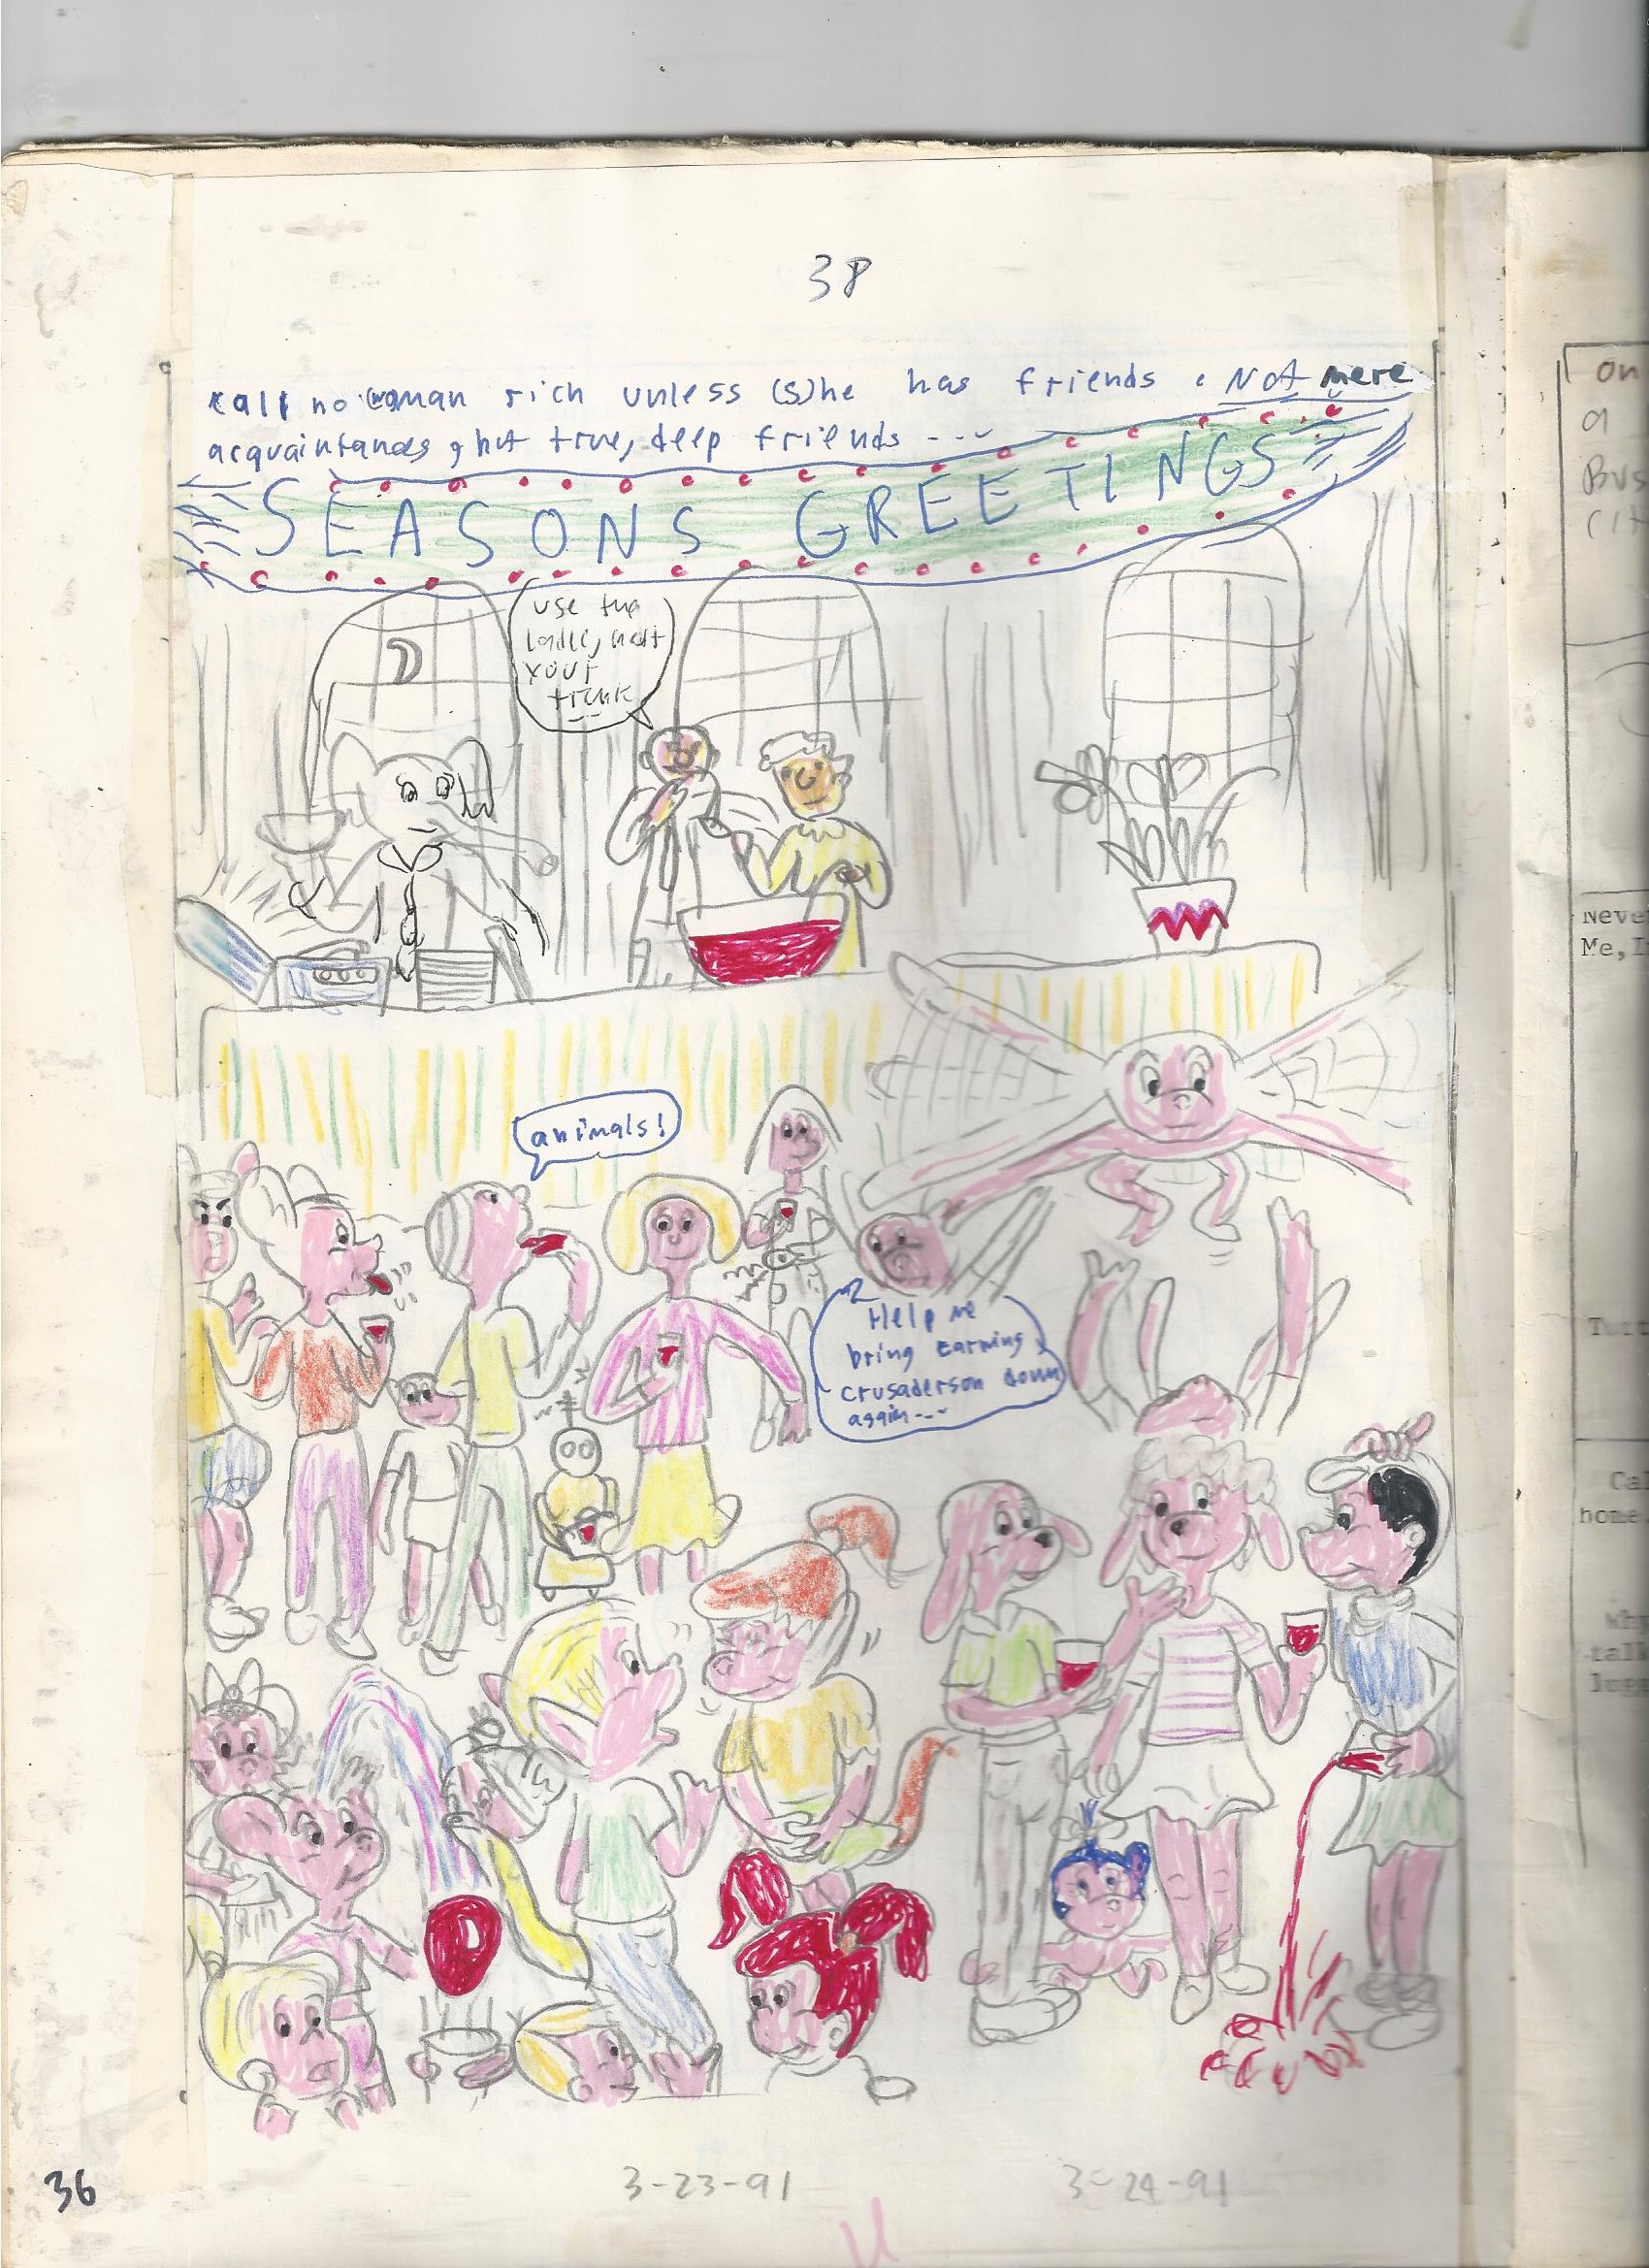 38
call no woman rich unless (s)he has friends. Not mere
acquaintances, but true, deep friends ---
SEASONS GREETINGS
use the
ladle, not
your
trunk
animals!
Help me
bring
crusaderson down
again---
on
a
Bus
Neve
Me, I
Ca
home
Wh
talk
36
3-23-91
3-24-91